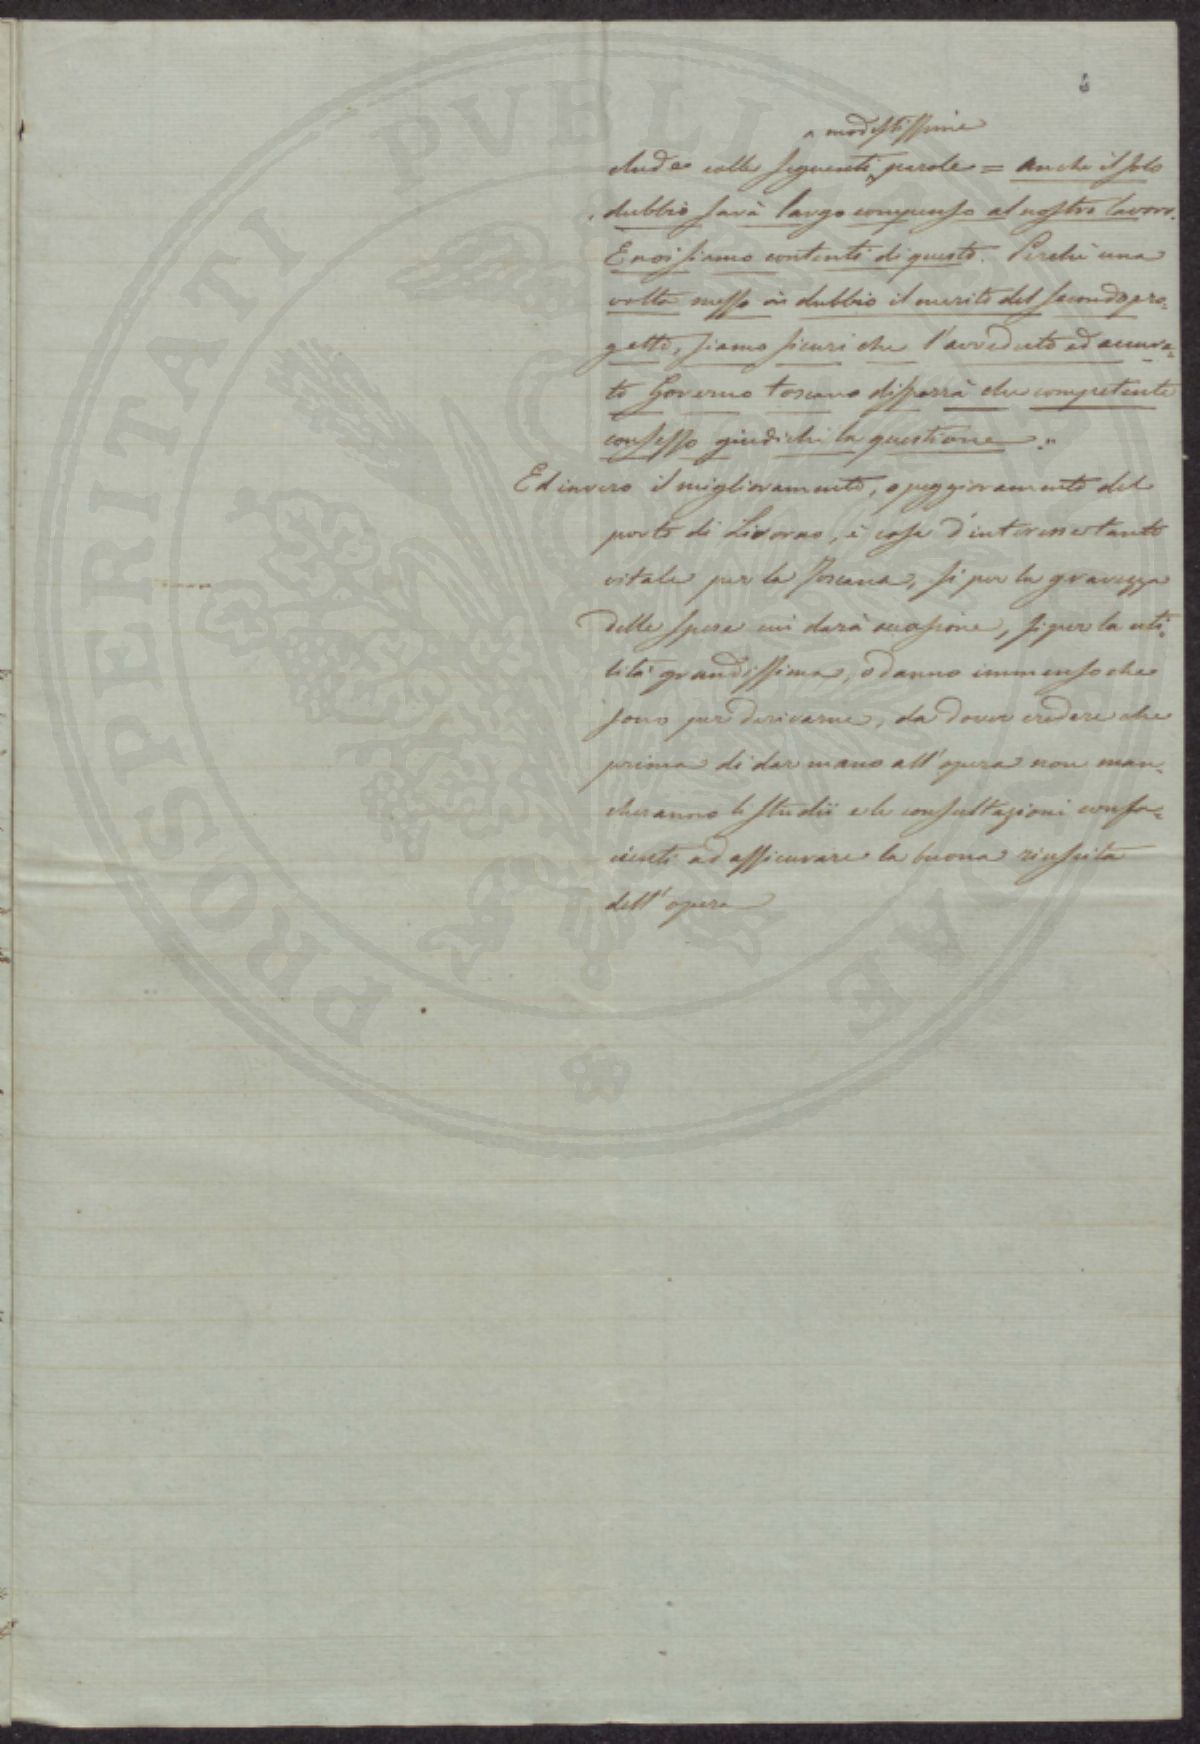 PROSPERITATI PVBLICAE AVGENDAE
modestissime
clude colle seguenti parole = anche il solo
dubbio sarà largo compenso al nostro lavoro.
E noi siamo contenti di questo. Perchè una
volta messo in dubbio il merito del secondo pro-
getto, siamo sicuri che l'avveduto ed accura-
to Governo toscano disporrà che competente
consesso giudichi la questione."
Ed invero il miglioramento, o peggioramento del
porto di Livorno, è cosa d'interesse tanto
vitale per la Toscana, sì per la gravezza
delle spese cui darà occasione, sì per la uti-
lità grandissima, o danno immenso che
sono per derivarne, da dover credere che
prima di dar mano all'opera non man-
cheranno li studii e le consultazioni confa-
cienti ad assicurare la buona riuscita
dell'opera